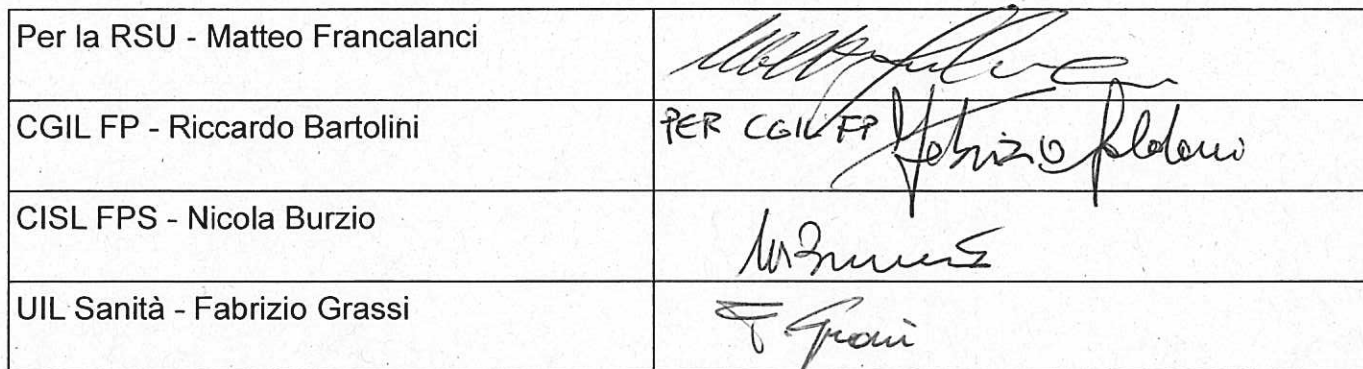 Per la RSU - Matteo Francalanci
CGIL FP - Riccardo Bartolini
PER CGIL FP Fabrizio
CISL FPS - Nicola Burzio
UIL Sanità - Fabrizio Grassi
F Grassi